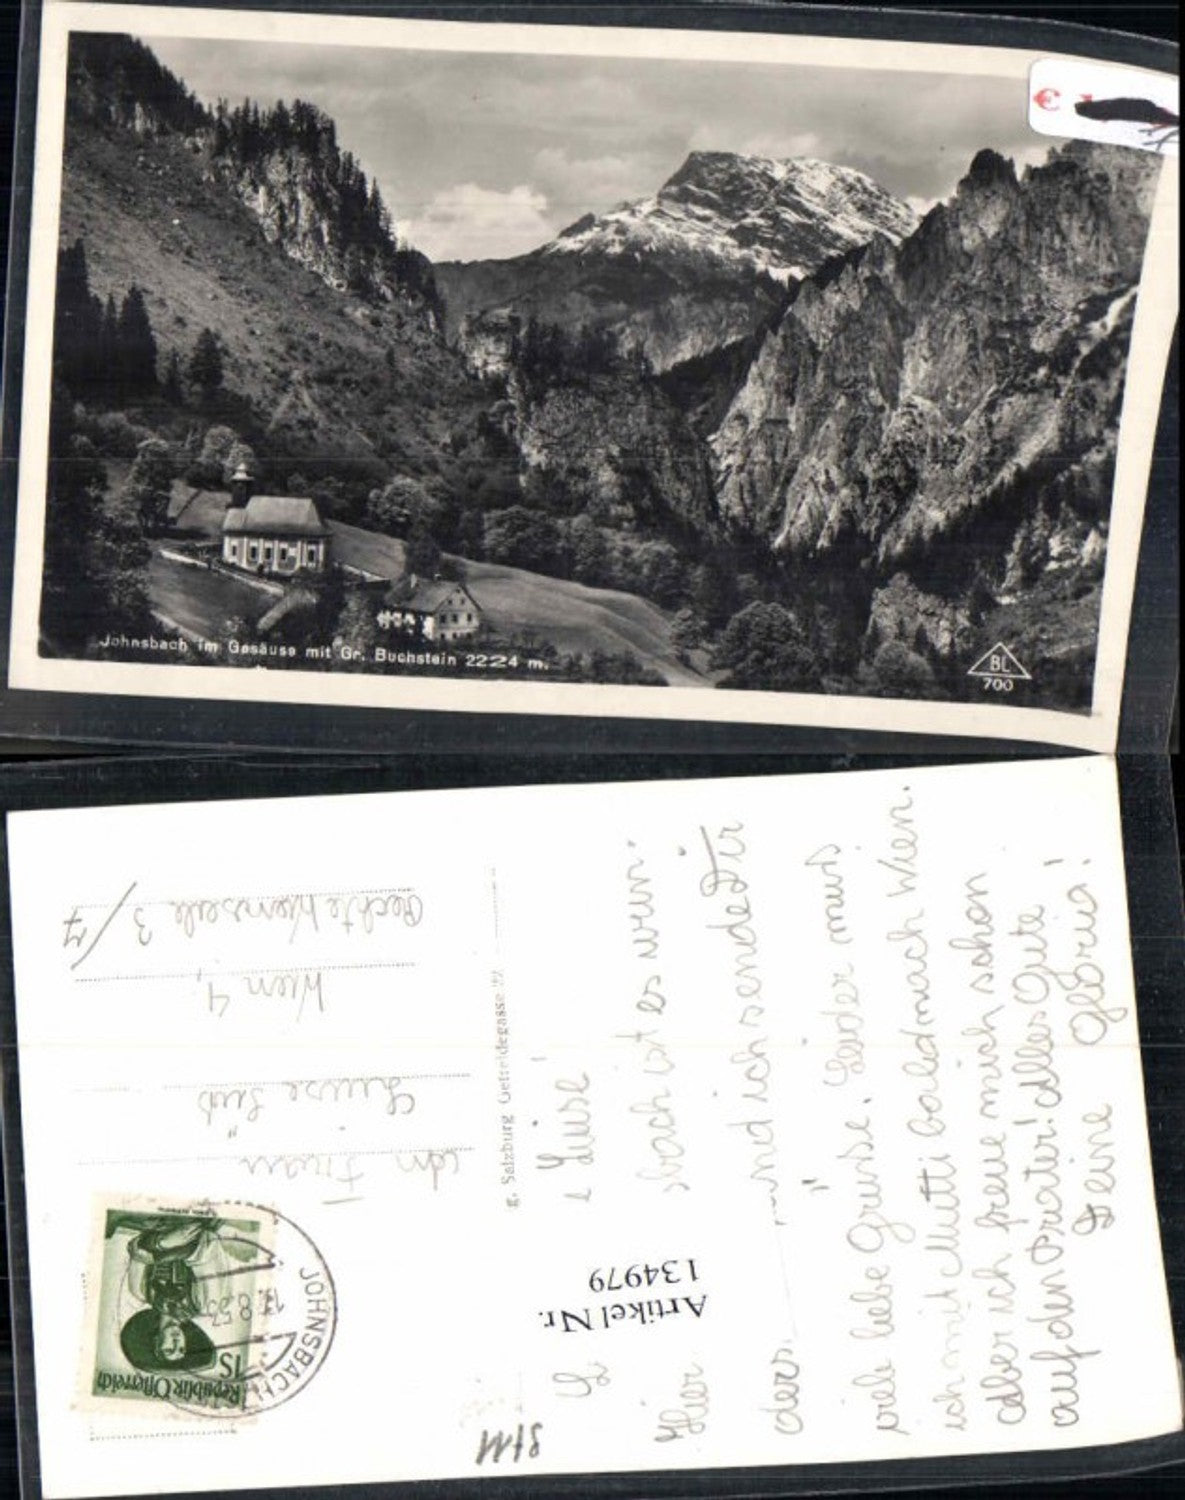 €
Johnsbach im Gesäuse mit Gr. Buchstein 2224 m.
BL
700
Luise!
Hier
sbach ist es wun-
der
und ich sende Dir
viele liebe Grüsse. Leider muß
ich mit Mutti bald nach Wien.
Aber ich freue mich schon
auf den Prater! Alles Gute
Deine Gloria!
Artikel Nr.
134979
g. Salzburg Getreidegasse 22
JOHNSBACH
Republik Österreich
1S
An Frau
Luise
Wien 4,
Rechte Wienzeile 3/7